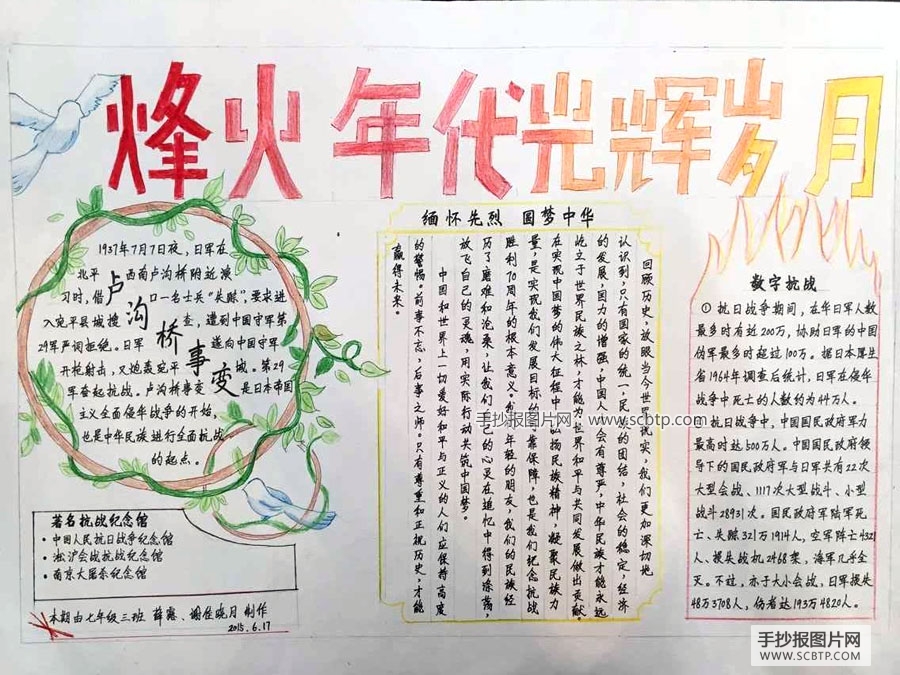 烽火年代光辉岁月
1937年7月7日夜，日军在
北平西南卢沟桥附近演
习时，借口一名士兵“失踪”，要求进
入宛平县城搜查，遭到中国守军第
29军严词拒绝。日军遂向中国守军
开枪射击，又炮轰宛平城。第29
军奋起抗战。卢沟桥事变是日本帝国
主义全面侵华战争的开始，
也是中华民族进行全面抗战
的起点。
卢沟桥事变
著名抗战纪念馆
·中国人民抗日战争纪念馆
·淞沪会战抗战纪念馆
·南京大屠杀纪念馆
本期由七年级三班 薛 谢佳晓月 制作
2015.6.17
缅怀先烈 圆梦中华
回顾历史，放眼当今世界现实，我们更加深切地
认识到，只有国家的统一，民族的团结，社会的稳定，经济
的发展，国力的增强，中国人才会有尊严，中华民族才能永远
屹立于世界民族之林，才能为世界和平与共同发展做出贡献。
在实现中国梦的伟大征程中，弘扬民族精神，凝聚民族力
量，是实现我们发展目标的可靠保障，也是我们纪念抗战
胜利70周年的根本意义。年轻的朋友，我们的民族经
历了磨难和沧桑，让我们的心灵在追忆中得到涤荡，
放飞自己的灵魂，用实际行动共筑中国梦。
中国和世界上一切爱好和平与正义的人们应保持高度
的警惕。前事不忘，后事之师。只有尊重和正视历史，才能
赢得未来。
数字抗战
①抗日战争期间，在华日军人数
最多时有近200万，协助日军的中国
伪军最多时超过100万。据日本厚生
省1964年调查后统计，日军在侵华
战争中死亡的人数约为44万人。
②抗日战争中，中国国民政府军力
最高时达500万人。中国国民政府领
导下的国民政府军与日军共有22次
大型会战、1117次大型战斗、小型
战斗28931次。国民政府军陆军死
亡、失踪321万1914人，空军阵亡4321
人、损失战机2468架，海军几乎全
灭。不过，亦于大小会战，日军损失
48万3708人，伤者达193万4820人。
手抄报图片网 www.scbtp.com
手抄报图片网
WWW.SCBTP.COM